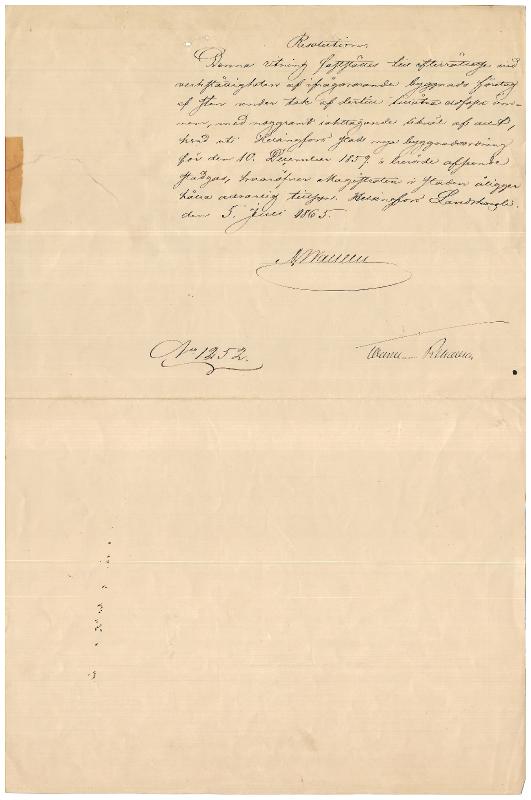 Resolution.
Denna ritning fastställes till efterrättelse vid
verkställigheten af ifrågavarande byggnads företag
af sten under tak af
nem, med noggrant iakttagande likväl af allt,
hvad uti Helsingfors stads nya byggnadsordning
för den 10 December 1859 i berörde afseende
stadgas, hvaröfver Magistraten i staden åligger
hålla answarig tillsyn. Helsingfors Landskansli
den 5 Juli 1865.
No 1252.